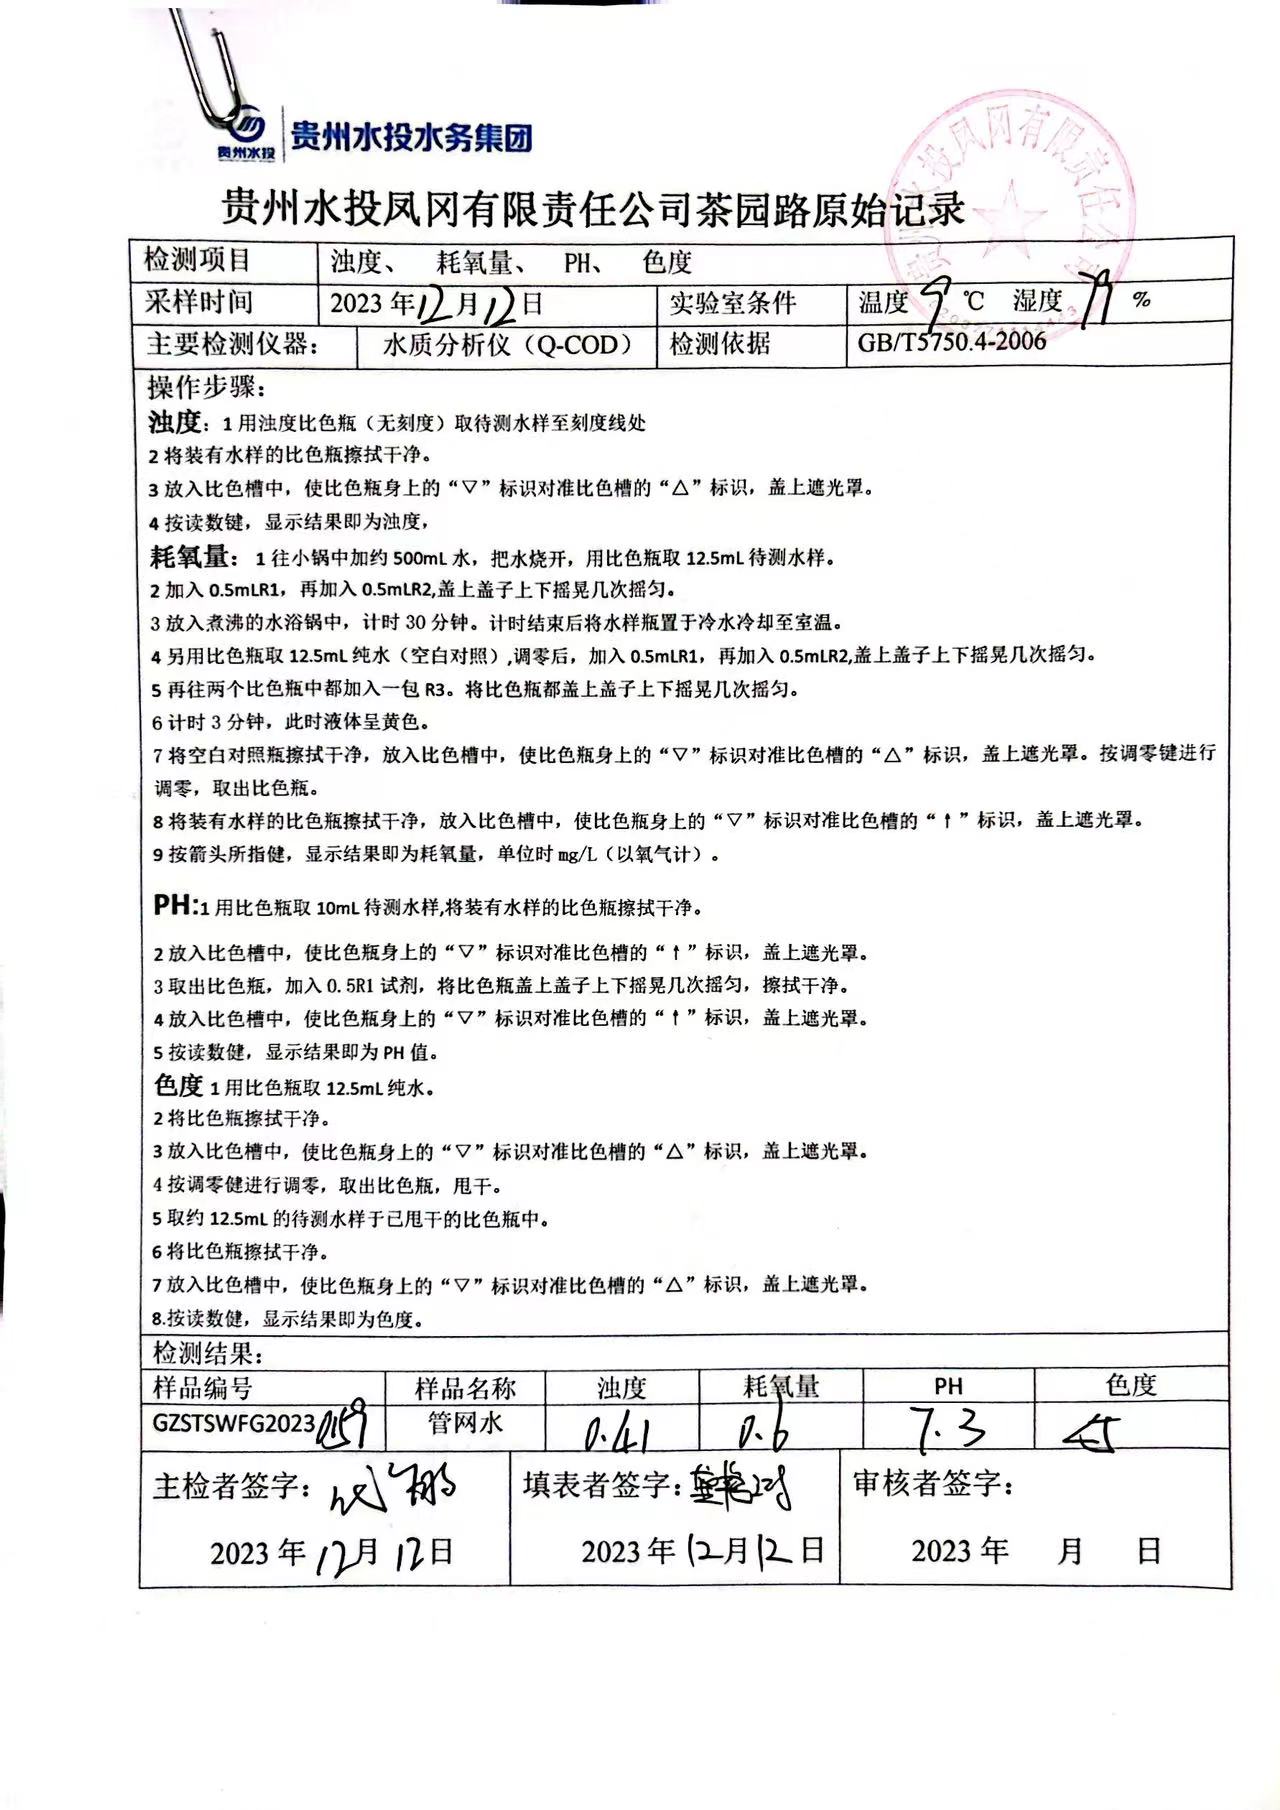 贵州水投
贵州水投水务集团
贵州水投凤冈有限责任公司茶园路原始记录
检测项目 浊度、 耗氧量、 PH、 色度
采样时间 2023年12月12日 实验室条件 温度 9 ℃ 湿度 79 %
主要检测仪器： 水质分析仪（Q-COD） 检测依据 GB/T5750.4-2006
操作步骤：
浊度：1用浊度比色瓶（无刻度）取待测水样至刻度线处
2将装有水样的比色瓶擦拭干净。
3放入比色槽中，使比色瓶身上的“▽”标识对准比色槽的“△”标识，盖上遮光罩。
4按读数键，显示结果即为浊度，
耗氧量：1往小锅中加约500mL水，把水烧开，用比色瓶取12.5mL待测水样。
2加入0.5mLR1，再加入0.5mLR2,盖上盖子上下摇晃几次摇匀。
3放入煮沸的水浴锅中，计时30分钟。计时结束后将水样瓶置于冷水冷却至室温。
4另用比色瓶取12.5mL纯水（空白对照）,调零后，加入0.5mLR1，再加入0.5mLR2,盖上盖子上下摇晃几次摇匀。
5再往两个比色瓶中都加入一包R3。将比色瓶都盖上盖子上下摇晃几次摇匀。
6计时3分钟，此时液体呈黄色。
7将空白对照瓶擦拭干净，放入比色槽中，使比色瓶身上的“▽”标识对准比色槽的“△”标识，盖上遮光罩。按调零键进行
调零，取出比色瓶。
8将装有水样的比色瓶擦拭干净，放入比色槽中，使比色瓶身上的“▽”标识对准比色槽的“↑”标识，盖上遮光罩。
9按箭头所指健，显示结果即为耗氧量，单位时mg/L（以氧气计）。
PH:1用比色瓶取10mL待测水样,将装有水样的比色瓶擦拭干净。
2放入比色槽中，使比色瓶身上的“▽”标识对准比色槽的“↑”标识，盖上遮光罩。
3取出比色瓶，加入0.5R1试剂，将比色瓶盖上盖子上下摇晃几次摇匀，擦拭干净。
4放入比色槽中，使比色瓶身上的“▽”标识对准比色槽的“↑”标识，盖上遮光罩。
5按读数健，显示结果即为PH值。
色度1用比色瓶取12.5mL纯水。
2将比色瓶擦拭干净。
3放入比色槽中，使比色瓶身上的“▽”标识对准比色槽的“△”标识，盖上遮光罩。
4按调零健进行调零，取出比色瓶，甩干。
5取约12.5mL的待测水样于已甩干的比色瓶中。
6将比色瓶擦拭干净。
7放入比色槽中，使比色瓶身上的“▽”标识对准比色槽的“△”标识，盖上遮光罩。
8.按读数健，显示结果即为色度。
检测结果：
样品编号 样品名称 浊度 耗氧量 PH 色度
GZSTSWFG20230159 管网水 0.41 0.6 7.3 <5
主检者签字： 填表者签字： 审核者签字：
2023年12月12日 2023年12月12日 2023年 月 日